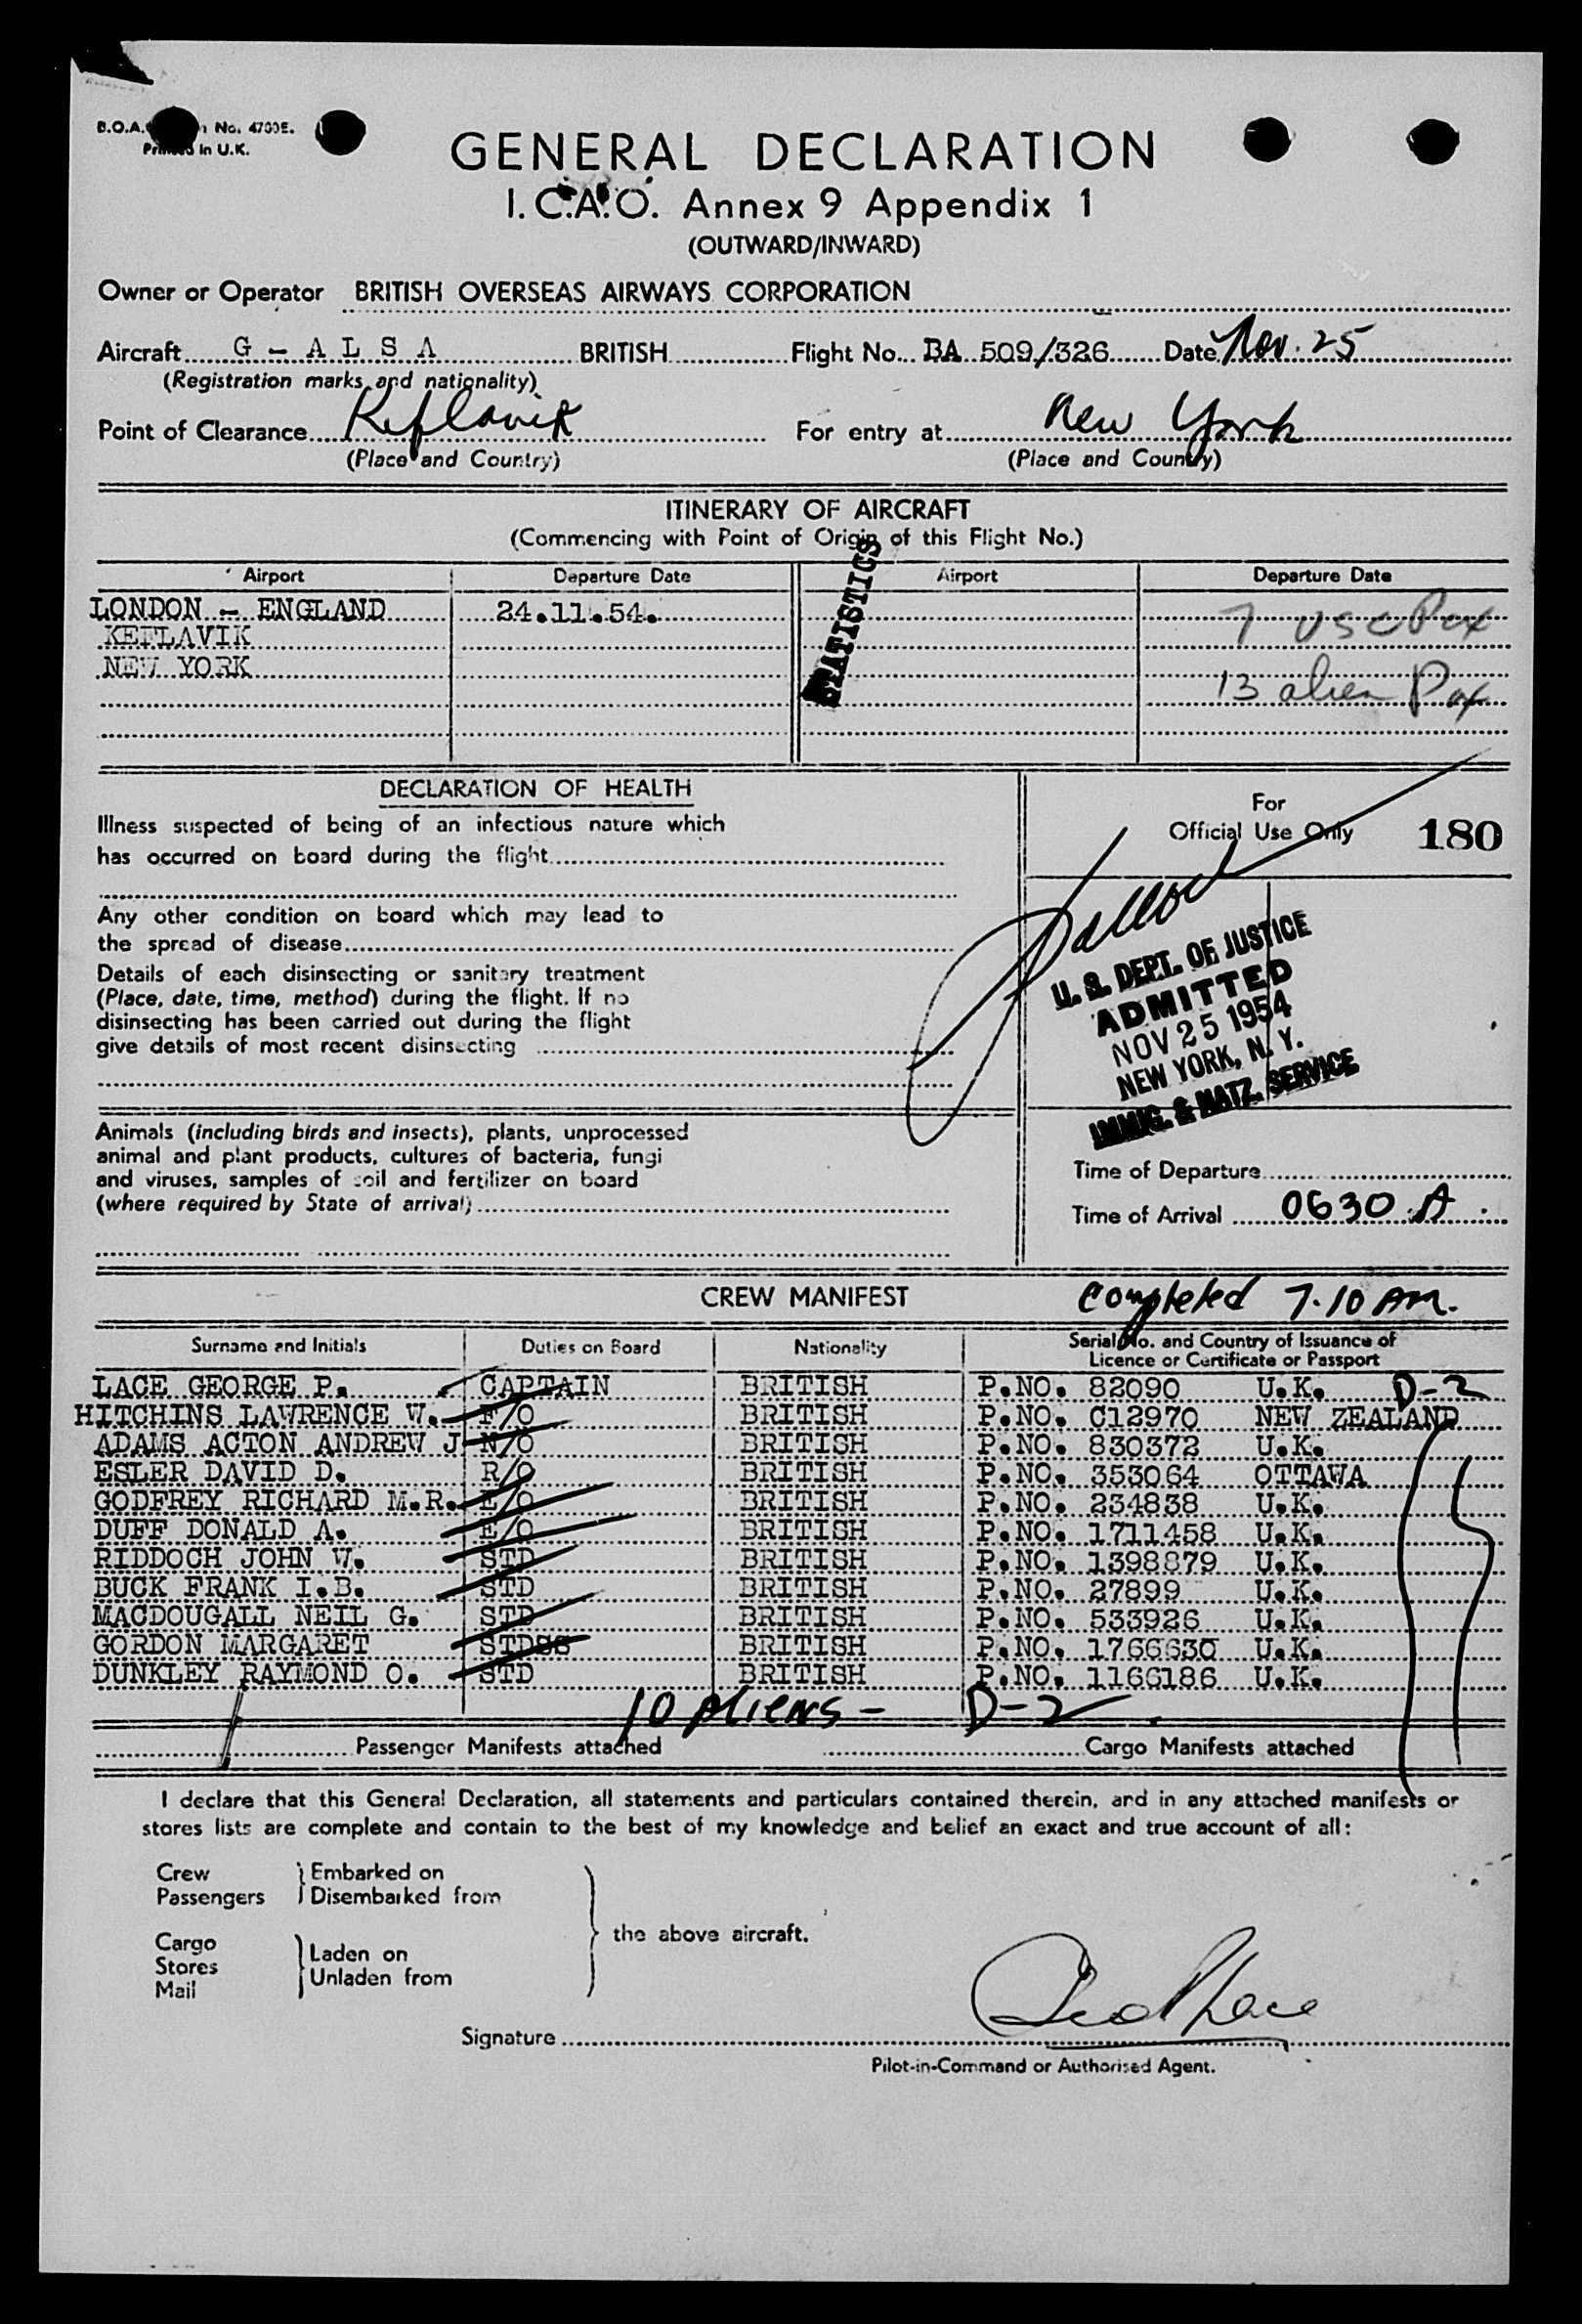 B.O.A. No. 4700E.
Printed in U.K.
GENERAL DECLARATION
I.C.A.O. Annex 9 Appendix 1
(OUTWARD/INWARD)
Owner or Operator BRITISH OVERSEAS AIRWAYS CORPORATION
Aircraft G - A L S A BRITISH Flight No. BA 509/326 Date Nov. 25
(Registration marks and nationality)
Point of Clearance Keflavik For entry at New York
(Place and Country) (Place and Country)
ITINERARY OF AIRCRAFT
(Commencing with Point of Origin of this Flight No.)
Airport Departure Date Airport Departure Date
LONDON - ENGLAND 24.11.54. 7 USC Pax
KEFLAVIK
NEW YORK 13 alien Pax
STATISTICS
DECLARATION OF HEALTH
Illness suspected of being of an infectious nature which
has occurred on board during the flight
Any other condition on board which may lead to
the spread of disease
Details of each disinsecting or sanitary treatment
(Place, date, time, method) during the flight. If no
disinsecting has been carried out during the flight
give details of most recent disinsecting
Animals (including birds and insects), plants, unprocessed
animal and plant products, cultures of bacteria, fungi
and viruses, samples of soil and fertilizer on board
(where required by State of arrival)
For
Official Use Only 180
U. S. DEPT. OF JUSTICE
ADMITTED
NOV 25 1954
NEW YORK, N. Y.
IMMIG. & NATZ. SERVICE
Time of Departure
Time of Arrival 0630 A
CREW MANIFEST Completed 7.10 Am.
Surname and Initials Duties on Board Nationality Serial No. and Country of Issuance of
Licence or Certificate or Passport
LACE GEORGE P. CAPTAIN BRITISH P.NO. 82090 U.K. D-2
HITCHINS LAWRENCE W. F/O BRITISH P.NO. C12970 NEW ZEALAND
ADAMS ACTON ANDREW J N/O BRITISH P.NO. 830372 U.K.
ESLER DAVID D. R/O BRITISH P.NO. 353064 OTTAWA
GODFREY RICHARD M.R. E/O BRITISH P.NO. 234838 U.K.
DUFF DONALD A. E/O BRITISH P.NO. 1711458 U.K.
RIDDOCH JOHN W. STD BRITISH P.NO. 1398879 U.K.
BUCK FRANK I.B. STD BRITISH P.NO. 27899 U.K.
MACDOUGALL NEIL G. STD BRITISH P.NO. 533926 U.K.
GORDON MARGARET STDSS BRITISH P.NO. 1766630 U.K.
DUNKLEY RAYMOND O. STD BRITISH P.NO. 1166186 U.K.
10 Aliens - D-2
Passenger Manifests attached Cargo Manifests attached
I declare that this General Declaration, all statements and particulars contained therein, and in any attached manifests or
stores lists are complete and contain to the best of my knowledge and belief an exact and true account of all:
Crew Embarked on
Passengers Disembarked from
the above aircraft.
Cargo
Stores Laden on
Mail Unladen from
Signature Geo P Lace
Pilot-in-Command or Authorised Agent.